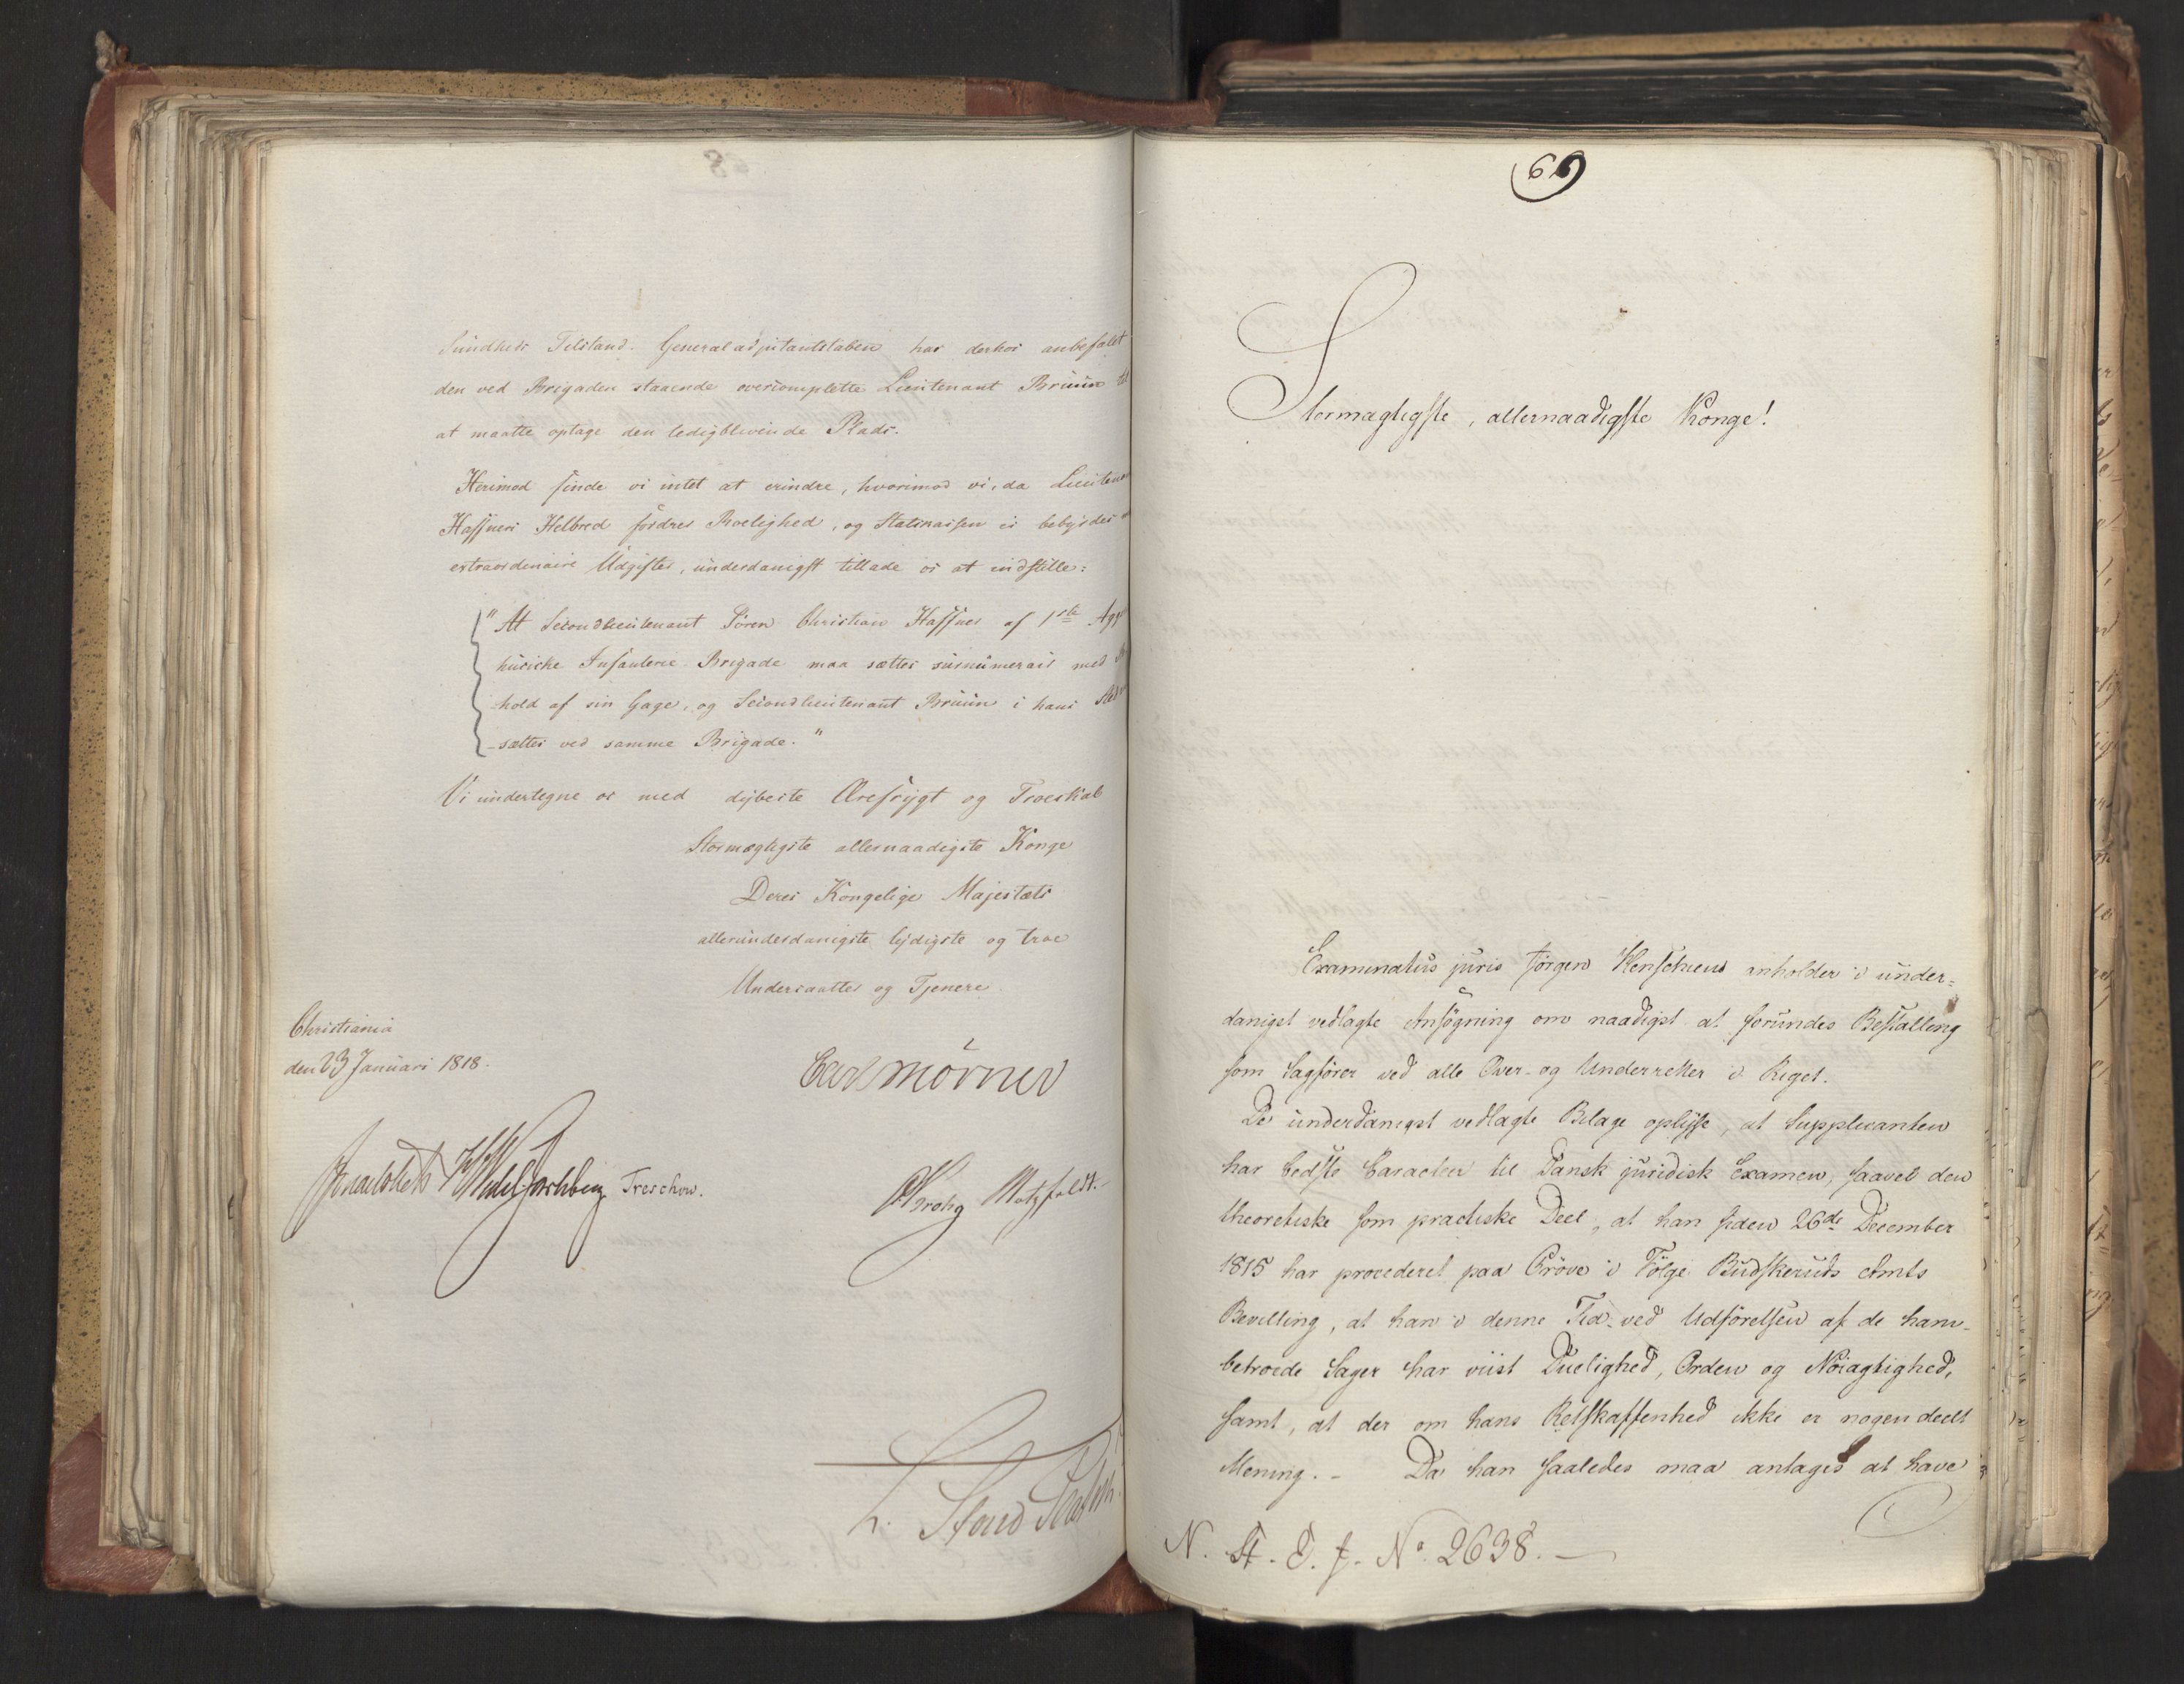 Sundheds Tilstand. Generaladjutantstaben har derhos anbefalet
den ved Brigaden staaende overcomplette Lieutenant Bruun til
at maatte optage den ledigblivende Plads.
Herimod finde vi intet at erindre, hvorimod vi, da Lieutenant
Haffners Helbred fordrer Roelighed, og Statskassen er bebyrdet
extraordinaire Udgifter, underdanigst tillade os at indstille:
"At Secondlieutenant Sören Christian Haffner af 1ste Agger
huusiske Infanterie Brigade maa sættes surnumerair med
hold af sin Gage, og Secondlieutenant Bruun i hans Sted
sættes ved samme Brigade."
Vi undertegne os med dybeste Ærefrygt og Troeskab
Stormægtigste allernaadigste Konge
Deres Kongelige Majestæts
allerunderdanigste lydigste og troe
Undersaatter og Tjenere.
Christiania
den 23 Januari 1818.
Carl Mörner
Sommerhielm Wedel Jarlsberg Treschow.
Krohg Motzfeldt.
69
Stormægtigste, allernaadigste Konge!
Examinatus juris Jörgen Henschien anholder i under=
danigst vedlagte Ansögning om naadigst at forundes Bestalling
som Sagförer ved alle Over- og Underretter i Riget.
De underdanigst vedlagte Bilage oplyse, at Supplicanten
har bedste Caracteer til Dansk juridisk Examen, saavel den
theoretiske som practiske Deel, at han siden 26de December
1815 har procederet paa Pröve i Fölge Budskeruds Amts
Bevilling, at han i denne Tid ved Udförelsen af de ham
betroede Sager har viist Duelighed, Orden og Nöiagtighed,
samt, at der om hans Retskaffenhed ikke er nogen deelt
Mening. - Da han saaledes maa antages at have
N. St. E. J. No. 2638. —